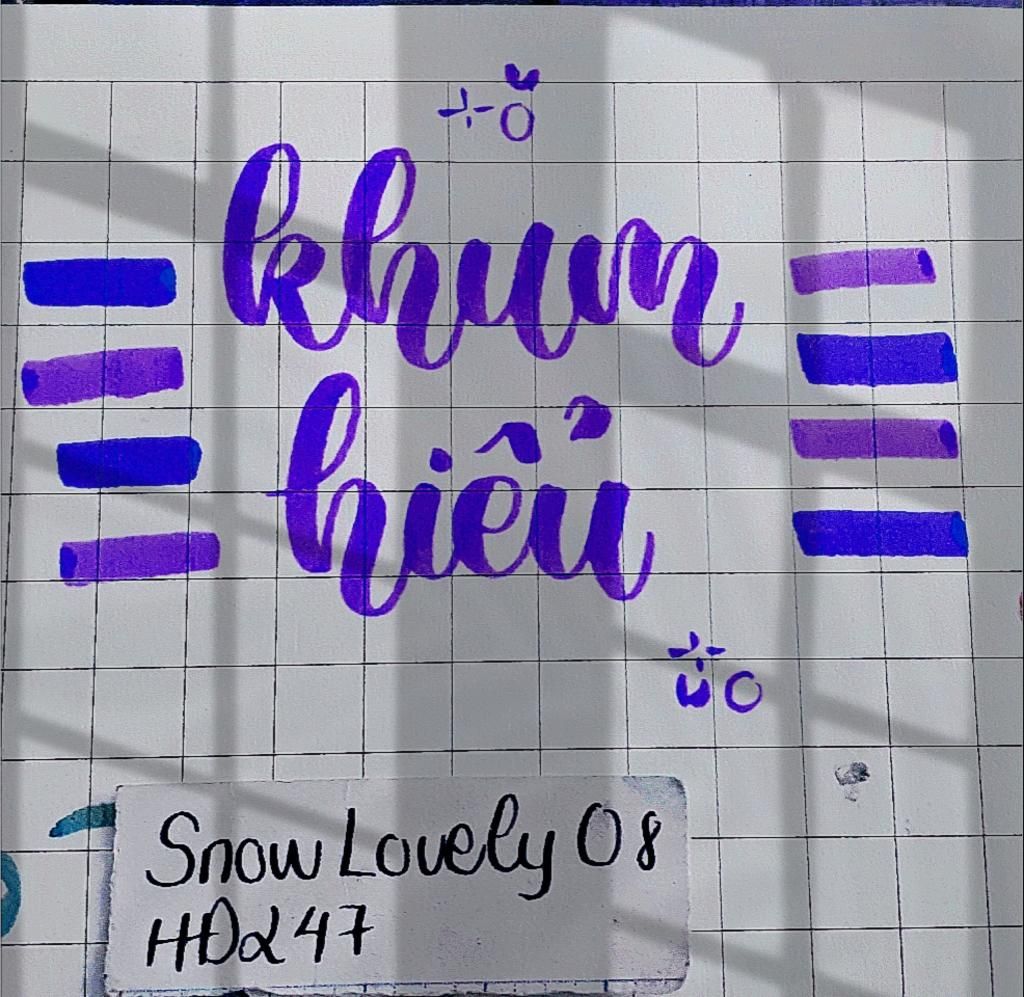 khum
hiểu
Snow Lovely 08
HDα47